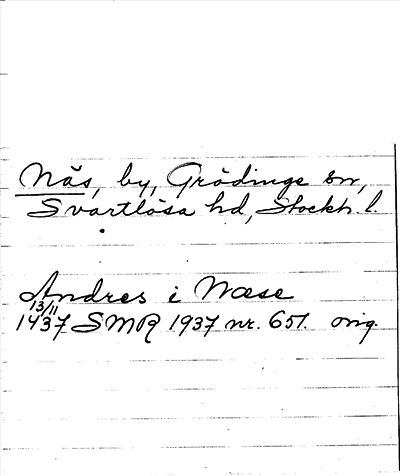 Näs, by, Grödinge sn,
Svartlösa hd, Stockh. l.
Andres i Næse
13/11
1437 SMR 1937 nr. 651. orig.